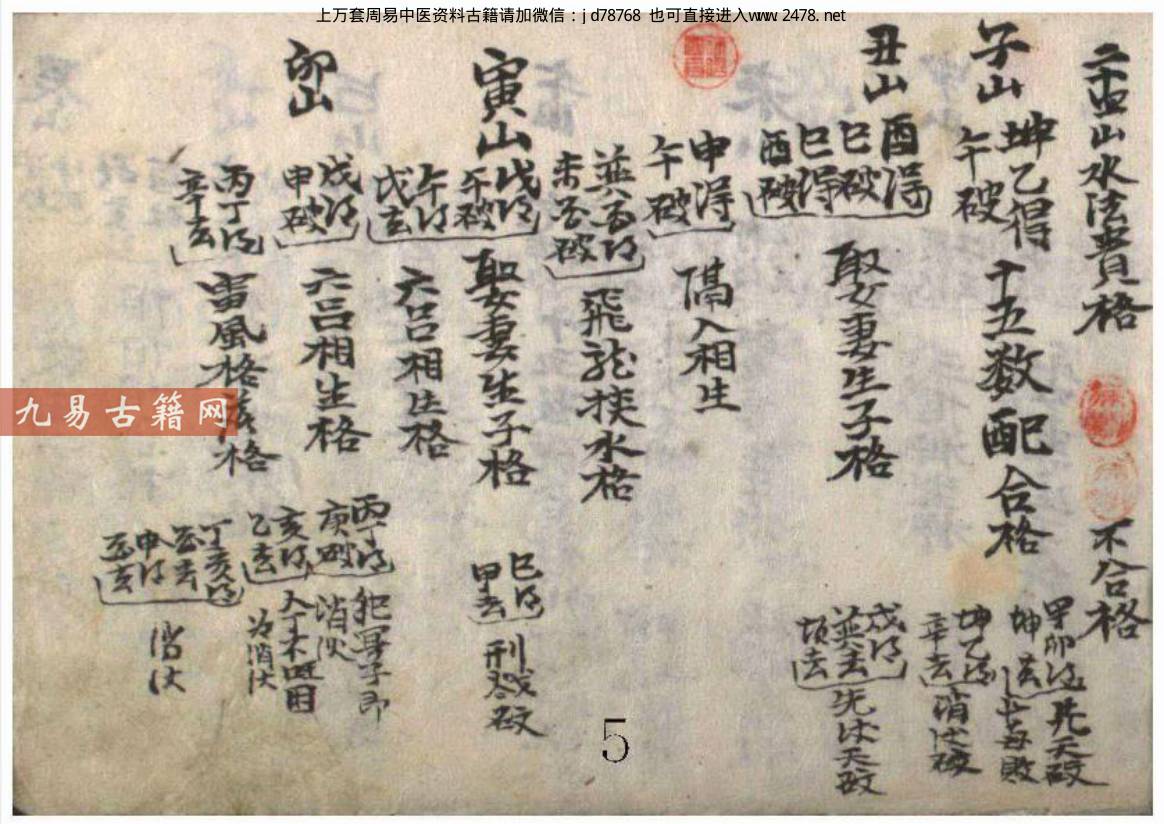 上万套周易中医资料古籍请加微信：jd78768 也可直接进入www.2478.net
二十四山水法貴格
不合格
子山
坤乙得
午破
十五数配合格
甲卯得
坤去
先天破
坤乙得
辛去
消亡破
丑山
酉得
巳破
巳得
酉破
取妻生子格
戌得
去
申得
午破
隔八相生
得
未破
飛龍挟水格
寅山
戌得
午破
娶妻生子格
巳得
甲去
刑戮破
午得
戌去
六吕相生格
卯山
戌得
申破
六吕相生格
丙丁得
庚破
犯罪子即
消
亥得
乙去
人丁不旺田
为消
丙丁得
辛去
雷風格
格
丁亥得
去
申得
去
九易古籍网
5